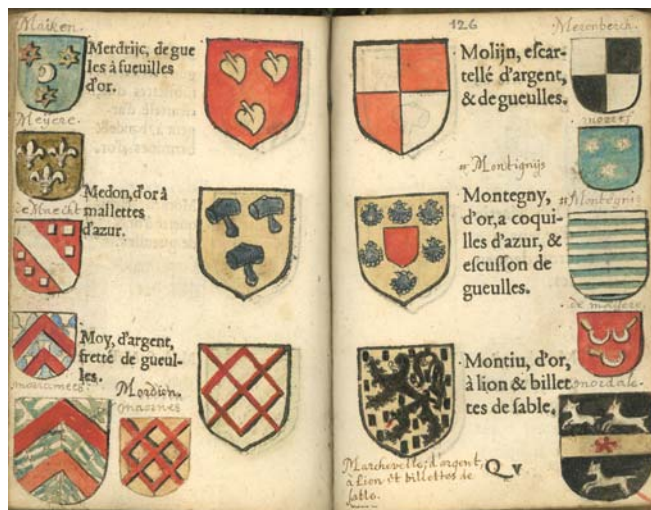 Maiken.
Merdrijc, de gue
les à fueuilles
d'or.
Meyere.
Medon, d'or à
mallettes
d'azur.
de Knecht
Moy, d'argent,
fretté de gueul-
les.
Mordien.
126
Merenberch.
Molijn, escar-
tellé d'argent,
& de gueulles.
Montignijs
Montegny,
d'or, a coqui-
lles d'azur, &
escusson de
gueulles.
Montignis
Montiu, d'or,
à lion & billet
tes de sable.
Marchevelle, d'argent,
à Lion et billettes de
sable.
Q v